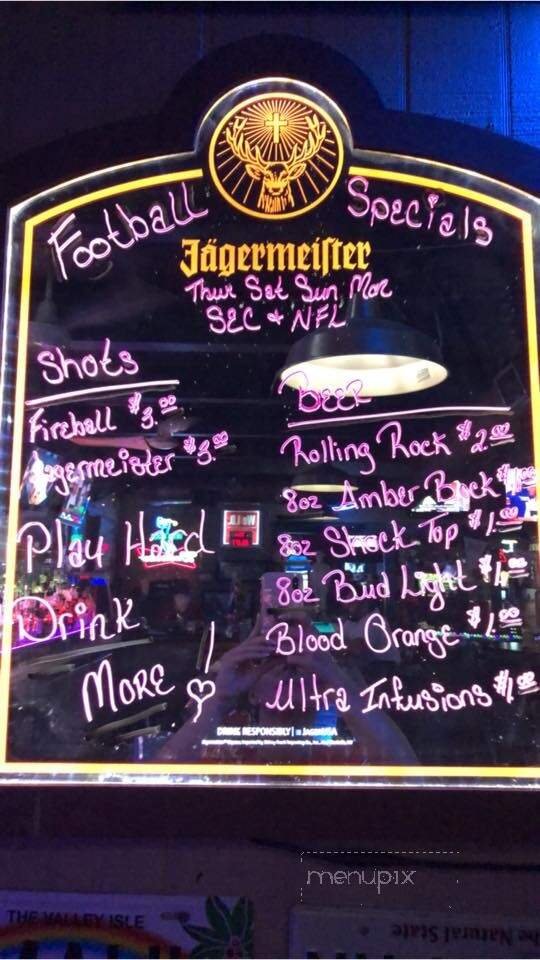 Football Specials
Jägermeister
Thur Sat Sun Mon
SEC + NFL
Shots
Fireball $3.00
Jagermeister $3.00
Play Hard
Drink
More!
BEER
Rolling Rock $2.00
8oz Amber Bock $1.00
8oz Shock Top $1.00
8oz Bud Light $1.00
Blood Orange $1.00
Ultra Infusions $1.00
DRINK RESPONSIBLY
menupix
THE VALLEY ISLE
The Natural State